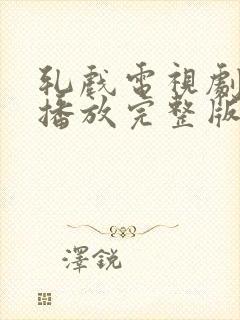 乳戲電視劇
播放完整版
澤銳